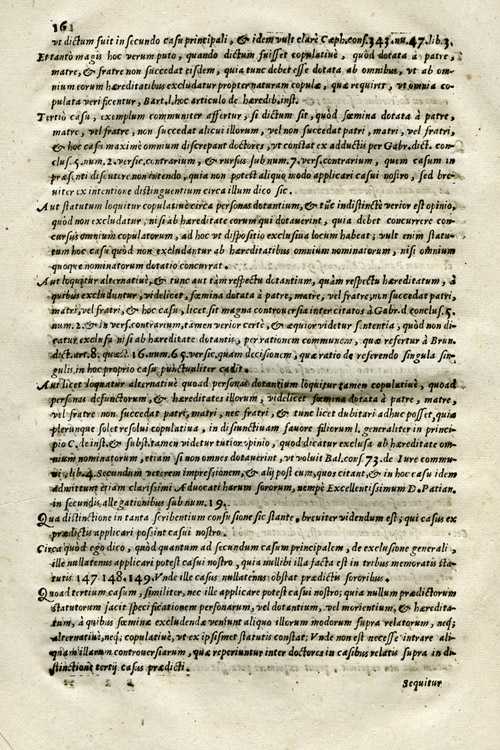 161
vt dictum fuit in secundo casu principali, & idem vult clarè Caph.cons.343.nu.47.lib.3.
Et tantò magis hoc verum puto, quando dictum fuisset copulatiuè, quòd dotata à patre,
matre, & fratre non succedat eisdem, quia tunc debet esse dotata ab omnibus, vt ab om-
nium eorum hæreditatibus excludatur propter naturam copulæ, quæ requirit, vt omnia co-
pulata verificentur, Bart.l.hoc articulo de hæredib.inst.
Tertiò casu, exemplum communiter affertur, si dictum sit, quòd fœmina dotata à patre,
matre, vel fratre, non succedat alicui illorum, vel non succedat patri, matri, vel fratri,
& hoc casu maximè omnium discrepant doctores, vt constat ex adductis per Gabr.dict. con-
clus.5.num.2.versic.contrarium, & rursus sub num.7.vers.contrarium, quem casum in
præsenti discutere non intendo, quia non potest aliquo modo applicari casui nostro, sed bre-
uiter ex intentione distinguentium circa illum dico sic.
Aut statutum loquitur copulatiuè circa personas dotantium, & tũc indistinctè verior est opinio,
quòd non excludatur, nisi ab hæreditate eorum qui dotauerint, quia debet concurrere con-
cursus omnium copulatorum, ad hoc vt dispositio exclusiua locum habeat; vult enim statu-
tum hoc casu quòd non excludantur ab hæreditatibus omnium nominatorum, nisi omnium
quoque nominatorum dotatio concurrat.
Aut loquitur alternatiuè, & tunc aut tàm respectu dotantium, quàm respectu hæreditatum, à
quibus excluduntur, videlicet, fœmina dotata à patre, matre, vel fratre, non succedat patri,
matri, vel fratri, & hoc casu, licet sit magna controuersia inter citatos à Gabr.d.conclus.5.
num.2.& in vers.contrarium, tamen verior certè, & æquior videtur sententia, quòd non di-
catur exclusa nisi ab hæreditate dotantis, per rationem communem, quæ refertur à Brun.
dict.art.8. quæst. 16.num.65.versic.quam decisionem, quæ ratio de referendo singula sin-
gulis, in hoc proprio casu punctualiter cadit.
Aut licet loquatur alternatiuè quoad personas dotantium loquitur tamen copulatiuè, quoad
personas defunctorum, & hæreditates illorum; videlicet fœmina dotata à patre, matre,
vel fratre non succedat patri, matri, nec fratri, & tunc licet dubitari adhuc posset, quia
plerunque solet resolui copulatiua, in disiunctiuam fauore filiorum l. generaliter in princi-
pio C. de inst. & subst. tamen videtur tutior opinio, quod dicatur exclusa ab hæreditate om-
nium nominatorum, etiam si non omnes dotauerint, vt voluit Bal.cons.73.de Iure commu-
ni, lib.4.Secundum veterem impressionem, & alij post eum, quos citant, & in hoc casu idem
admittunt etiam clarissimi Aduocati harum sororum, nempè Excellentissimum D.Patian.
in secundis allegationibus sub num.19.
Qua distinctione in tanta scribentium confusione sic stante, breuiter videndum est, qui casus ex
prædictis applicari possint casui nostro.
Circa quòd ego dico, quòd quantum ad secundum casum principalem, de exclusione generali,
ille nullatenus applicari potest casui nostro, quia nullibi illa facta est in tribus memoratis sta-
tutis 147.148.149.Vnde ille casus nullatenus obstat prædictis sororibus.
Quoad tertium casum, similiter, nec ille applicari potest casui nostro; quia nullum prædictorum
statutorum facit specificationem personarum, vel dotantium, vel morientium, & heredita-
tum, à quibus fœminæ excludendæ veniunt aliquo illorum modorum supra relatorum, neq;
alternatiuè, neq; copulatiuè, vt ex ipsismet statutis constat: Vnde non est necesse intrare ali-
quam illarum controuersiarum, quæ reperiuntur inter doctores in casibus relatis supra in di-
stinctione tertij casus prædicti.
Sequitur